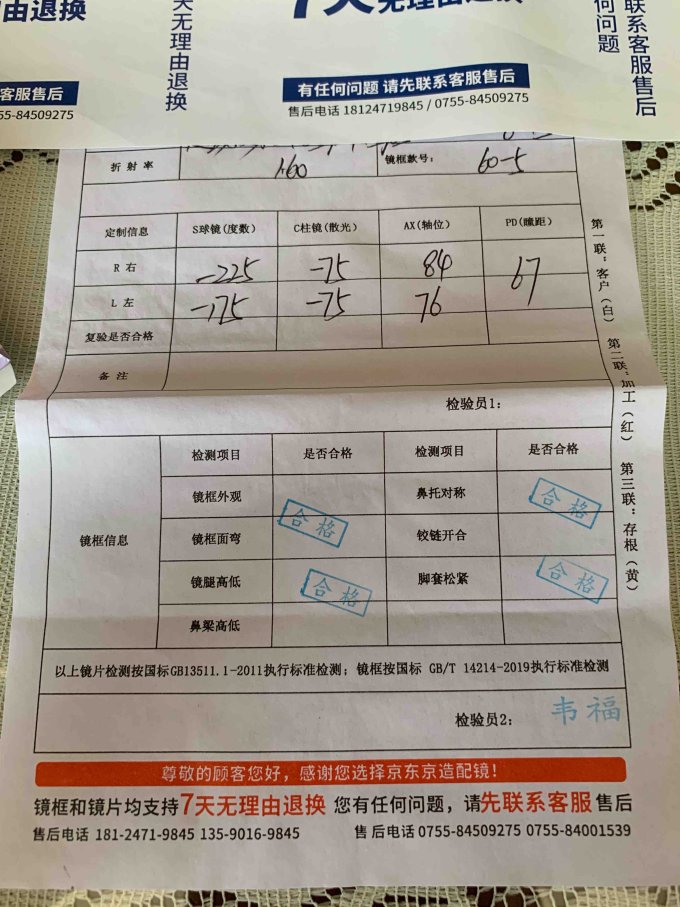 由退换
7天无理由退换
天无理由退换
何问题
联系客服售后
客服售后
有任何问题 请先联系客服售后
55-84509275
售后电话 18124719845 / 0755-84509275
折射率 1.60 镜框款号: 60-5
定制信息 S球镜(度数) C柱镜(散光) AX(轴位) PD(瞳距)
R 右 -225 -75 84 67
L 左 -175 -75 76
复验是否合格
备 注
检验员1:
第一联:客户(白) 第二联:加工(红) 第三联:存根(黄)
镜框信息 检测项目 是否合格 检测项目 是否合格
镜框外观 鼻托对称 合格
镜框面弯 合格 铰链开合
镜腿高低 合格 脚套松紧 合格
鼻梁高低
以上镜片检测按国标GB13511.1-2011执行标准检测; 镜框按国标 GB/T 14214-2019执行标准检测
检验员2: 韦福
尊敬的顾客您好，感谢您选择京东京造配镜!
镜框和镜片均支持7天无理由退换 您有任何问题，请先联系客服售后
售后电话 181-2471-9845 135-9016-9845 售后电话 0755-84509275 0755-84001539